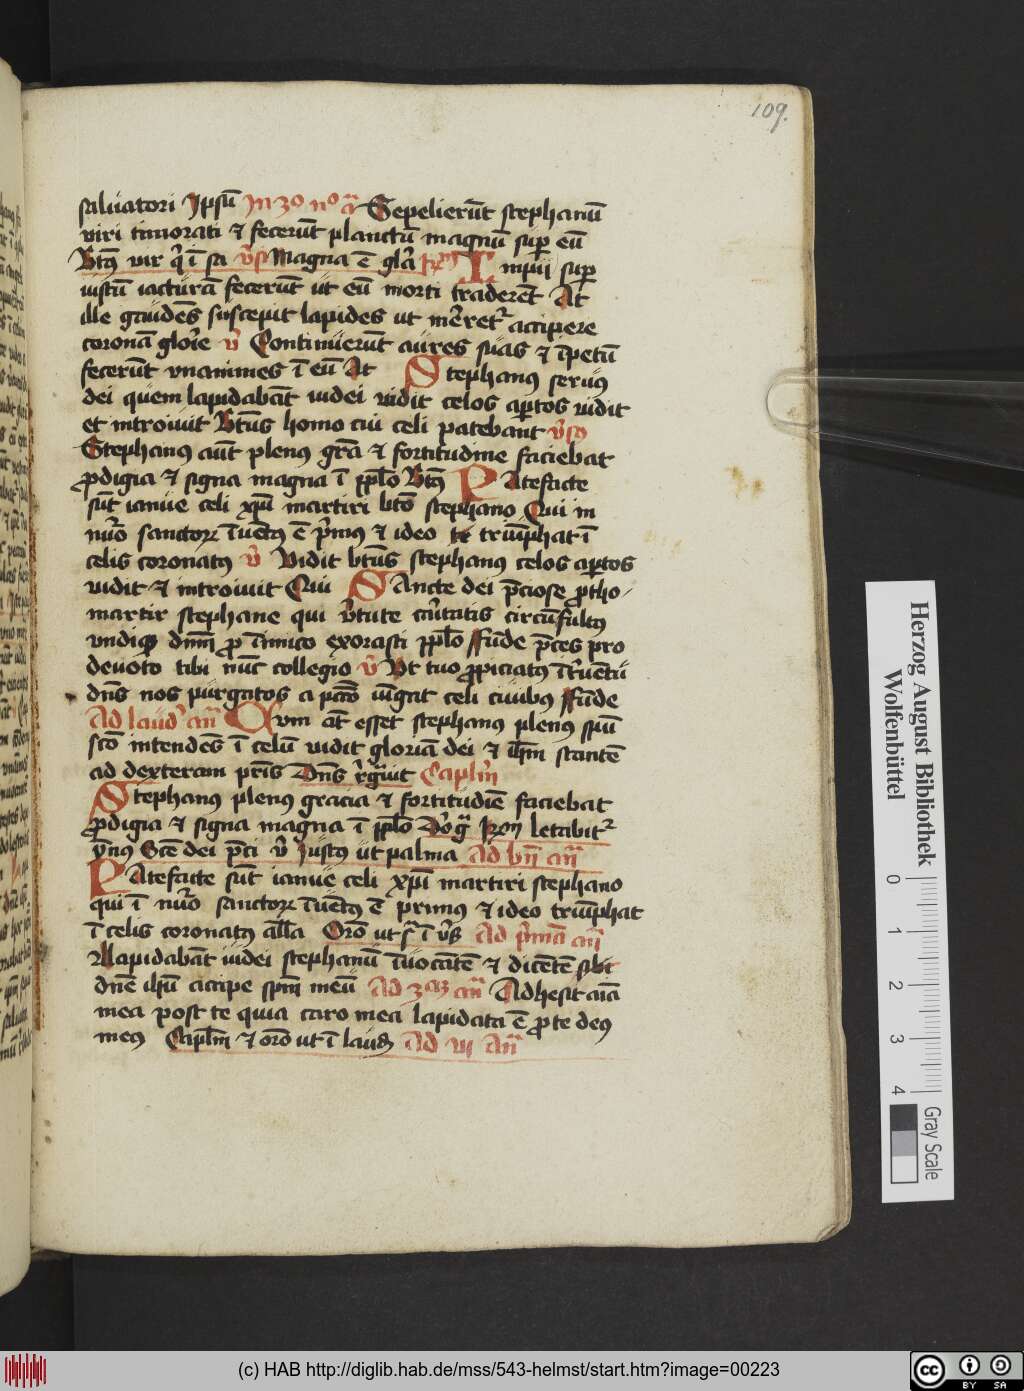 109.
saluatori Ipsū In 3o no ā Sepelierūt stephanū
viri timorati ⁊ fecerūt planctū magnū sup eū
Btꝰ vir q̇ ī sa v̄s Magna ē glā Impii sup
iustū iacturā fecerūt ut eū morti traderēt At
ille gaudēs suscepit lapides ut m̄eret᷑ accipere
coronā glorīe v̄ Continuerūt aures suas ⁊ īpetū
fecerūt vnanimes ī eū At Stephanꝰ seruꝰ
dei quem lapidabāt iudei vidit celos aꝑtos vidit
et introiuit Btūs homo cui celi patebant v̄sꝰ
Stephanꝰ aūt plenꝰ grā ⁊ fortitudine faciebat
ꝓdigia ⁊ signa magna ī pplo Btꝰ Patefacte
sūt ianue celi xpī martiri btō stephano Qui in
nūo sanctoꝝ īuētꝰ ē p̄mꝰ ⁊ ideo triūphat ī
celis coronatꝰ v̄ Vidit btūs stephanꝰ celos aꝑtos
vidit ⁊ introiuit Qui Sancte dei p̄ciose ꝓtho/
martir stephane qui v̄tute cāritatis circūfultꝰ
vndiqꝫ dnm̄ ꝓ īimico exorasti pplo ffūde p̄ces pro
deuoto tibi nūc collegio v̄ Vt tuo ꝓpiciatꝰ īt̄uentū
dn̄s nos purgatos a pctō iūgat celi ciuibꝰ ffūde
Ad laud᷑ an̄ Cum āt esset stephanꝰ plenꝰ spū
sctō intendēs ī celū vidit gloriā dei ⁊ ih̄m stantē
ad dexteram patris Dn̄s r̄gāuit Caplm̄
Stephanꝰ plenꝰ gracia ⁊ fortitudīe faciebat
ꝓdigia ⁊ signa magna ī pplo Dōgrā letabit᷑
v̄nꝰ Sce dei p̄ci v̄ Justꝰ ut palma Ad bn̄ an̄
Patefacte sūt ianue celi xpī martiri stephano
qui ī nūo sanctoꝝ īuētꝰ ē primꝰ ⁊ ideo triūphat
ī celis coronatꝰ allā Orō ut ī Ad p̄mā an̄
Llapidabāt iudei stephanū īuocātē ⁊ dicētē
dnē ih̄u accipe spm̄ meū Ad 3as an̄ Adhesit aīa
mea post te quia caro mea lapidata ē ꝓ te deꝰ
meꝰ Caplm̄ ⁊ orō ut ī laud᷑ Ad vi an̄
Herzog August Bibliothek
Wolfenbüttel
0 1 2 3 4
Gray Scale
(c) HAB http://diglib.hab.de/mss/543-helmst/start.htm?image=00223
cc BY SA